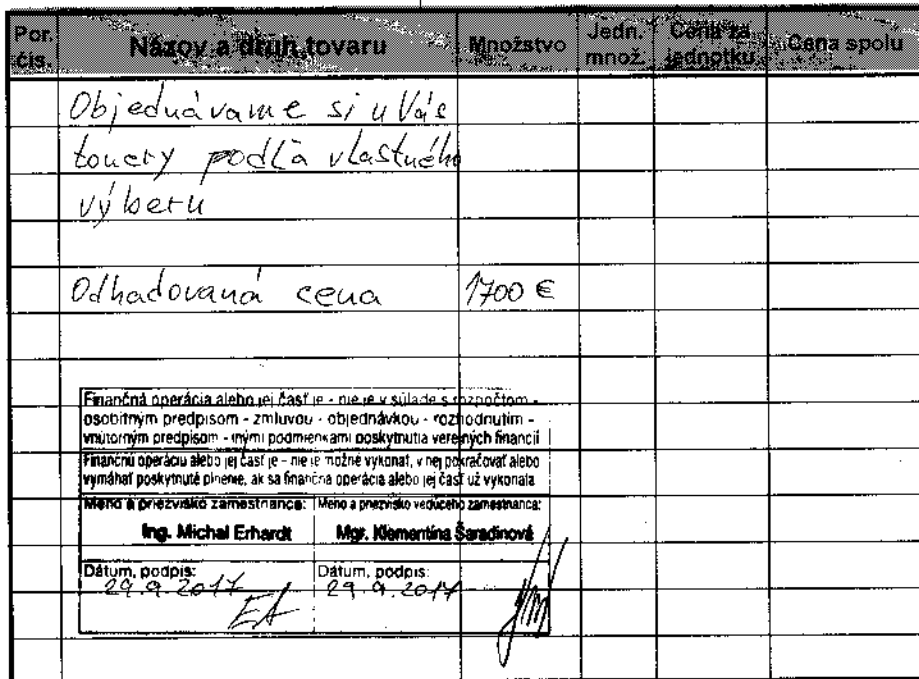 Por. čís. Názov a druh tovaru Množstvo Jedn. množ. Cena za jednotku Cena spolu
Objednávame si u Vás
tonery podľa vlastného
výberu
Odhadovaná cena 1700 €
Finančná operácia alebo jej časť je - nie je v súlade s rozpočtom -
osobitným predpisom - zmluvou - objednávkou - rozhodnutím -
vnútorným predpisom - inými podmienkami poskytnutia verejných financií
Finančnú operáciu alebo jej časť je - nie je možné vykonať, v nej pokračovať alebo
vymáhať poskytnuté plnenie, ak sa finančná operácia alebo jej časť už vykonala
Meno a priezvisko zamestnanca: Meno a priezvisko vedúceho zamestnanca:
Ing. Michal Erhardt Mgr. Klementína Šaradínová
Dátum, podpis: Dátum, podpis:
29.9.2017 29.9.2017